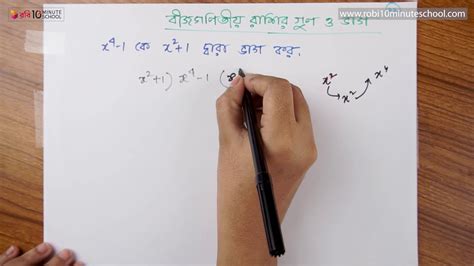 রবি 10 MINUTE SCHOOL
www.robi10minuteschool.com
বীজগণিতীয় রাশির গুণ ও ভাগ
x⁴-1 কে x²+1 দ্বারা ভাগ কর.
x²+1) x⁴-1 (x
x² x² x⁴